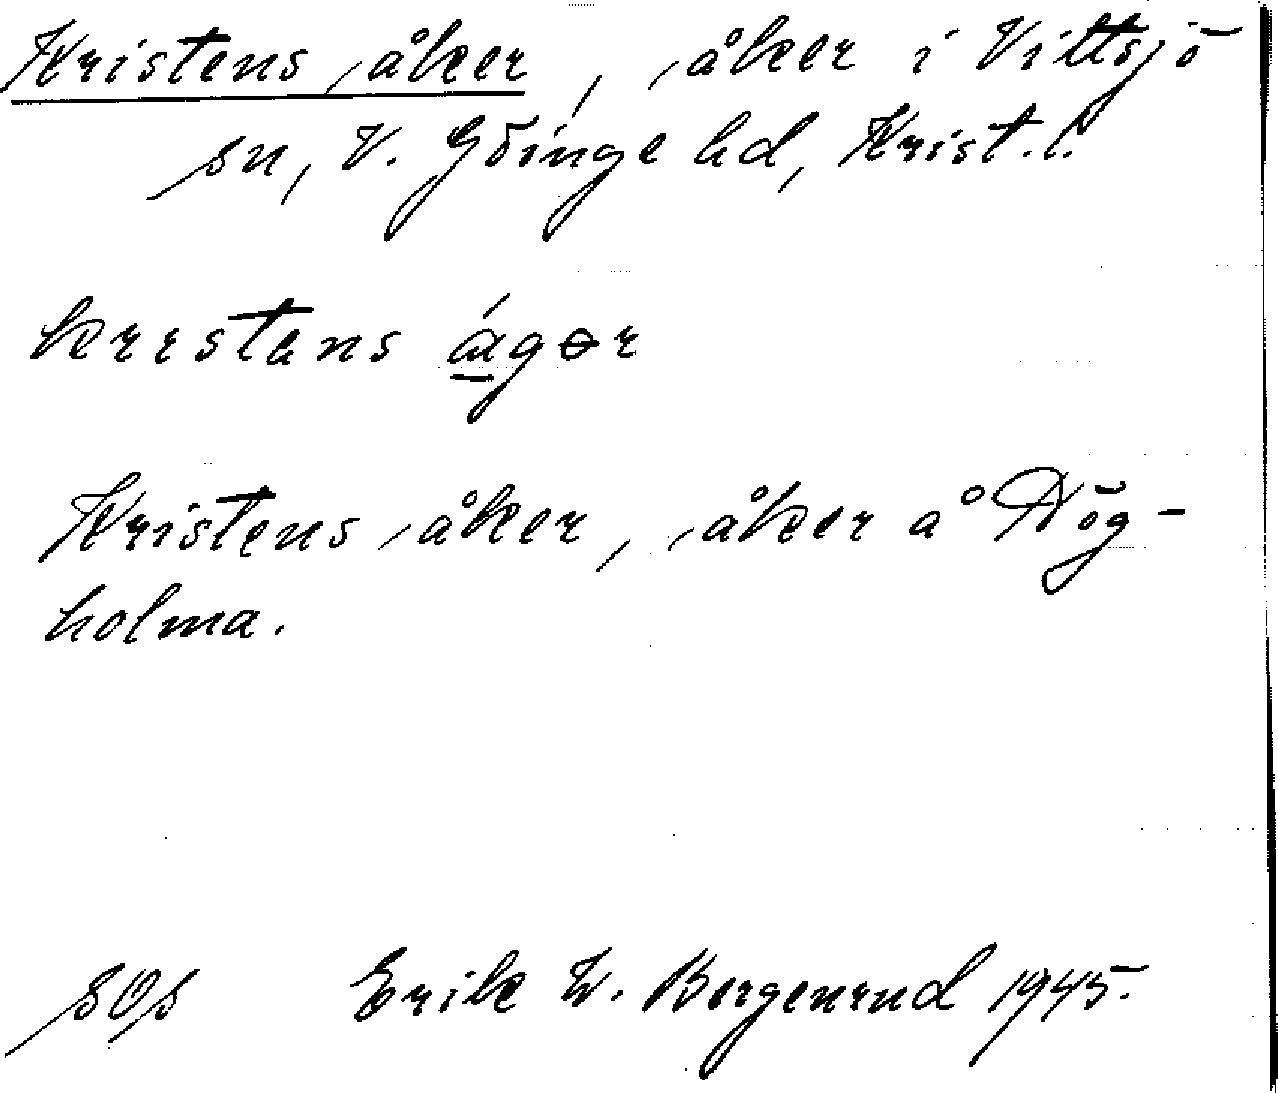 Kristens åker, åker i Vittsjö
sn, V. Göinge hd, Krist. l.
krɪstans ágər
Kristens åker, åker å Nög-
holma.
sOs Erik W. Bergenrud 1945.